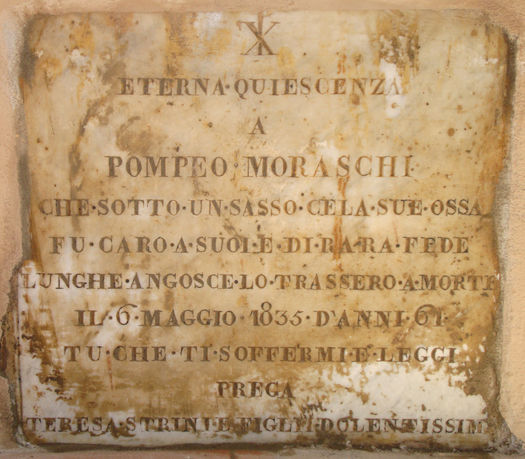 ETERNA·QUIESCENZA
A
POMPEO MORASCHI
CHE·SOTTO·UN·SASSO·CELA·SUE·OSSA
FU·CARO·A·SUOI·E·DI·RARA·FEDE
LUNGHE·ANGOSCE·LO·TRASSERO·A·MORTE
IL·6·MAGGIO·1835·D'ANNI·61·
TU·CHE·TI·SOFFERMI·E·LEGGI
PREGA
TERESA·STRINI·E·FIGLI·DOLENTISSIMI